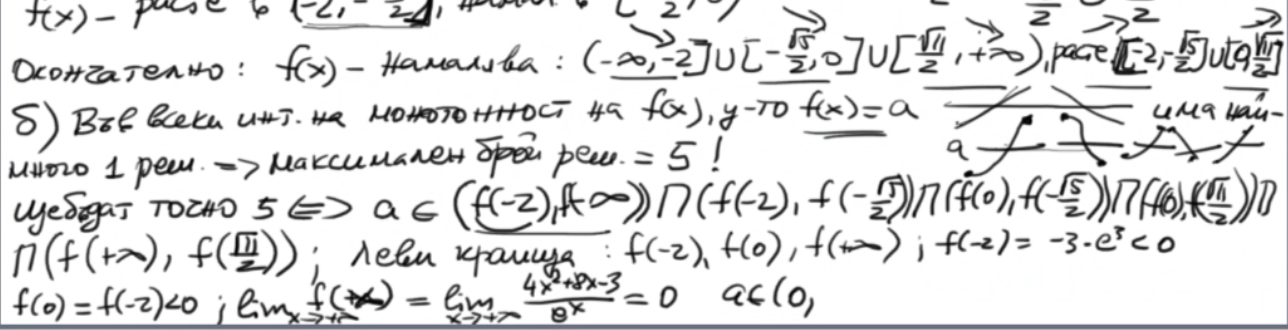 f(x) – расте в (-2, -
2
2
Окончателно: f(x) – намалява: (-∞, -2] ∪ [-√5/2, 0] ∪ [√11/2, +∞), расте [-2, -√5/2] ∪ [0, √11/2]
б) Във всеки инт. на монотонност на f(x), у-то f(x) = a има най-
много 1 реш. => максимален брой реш. = 5!
a
ще бъдат точно 5 <=> a ∈ (f(-2), f(-∞)) ∩ (f(-2), f(-√5/2)) ∩ (f(0), f(-√5/2)) ∩ (f(0), f(√11/2)) ∩
∩ (f(+∞), f(√11/2)); леви краища: f(-2), f(0), f(+∞); f(-2) = -3.e³ < 0
f(0) = f(-2) < 0; lim x→+∞ f(x) = lim x→+∞ (4x²+8x-3)/eˣ = 0 a ∈ (0,